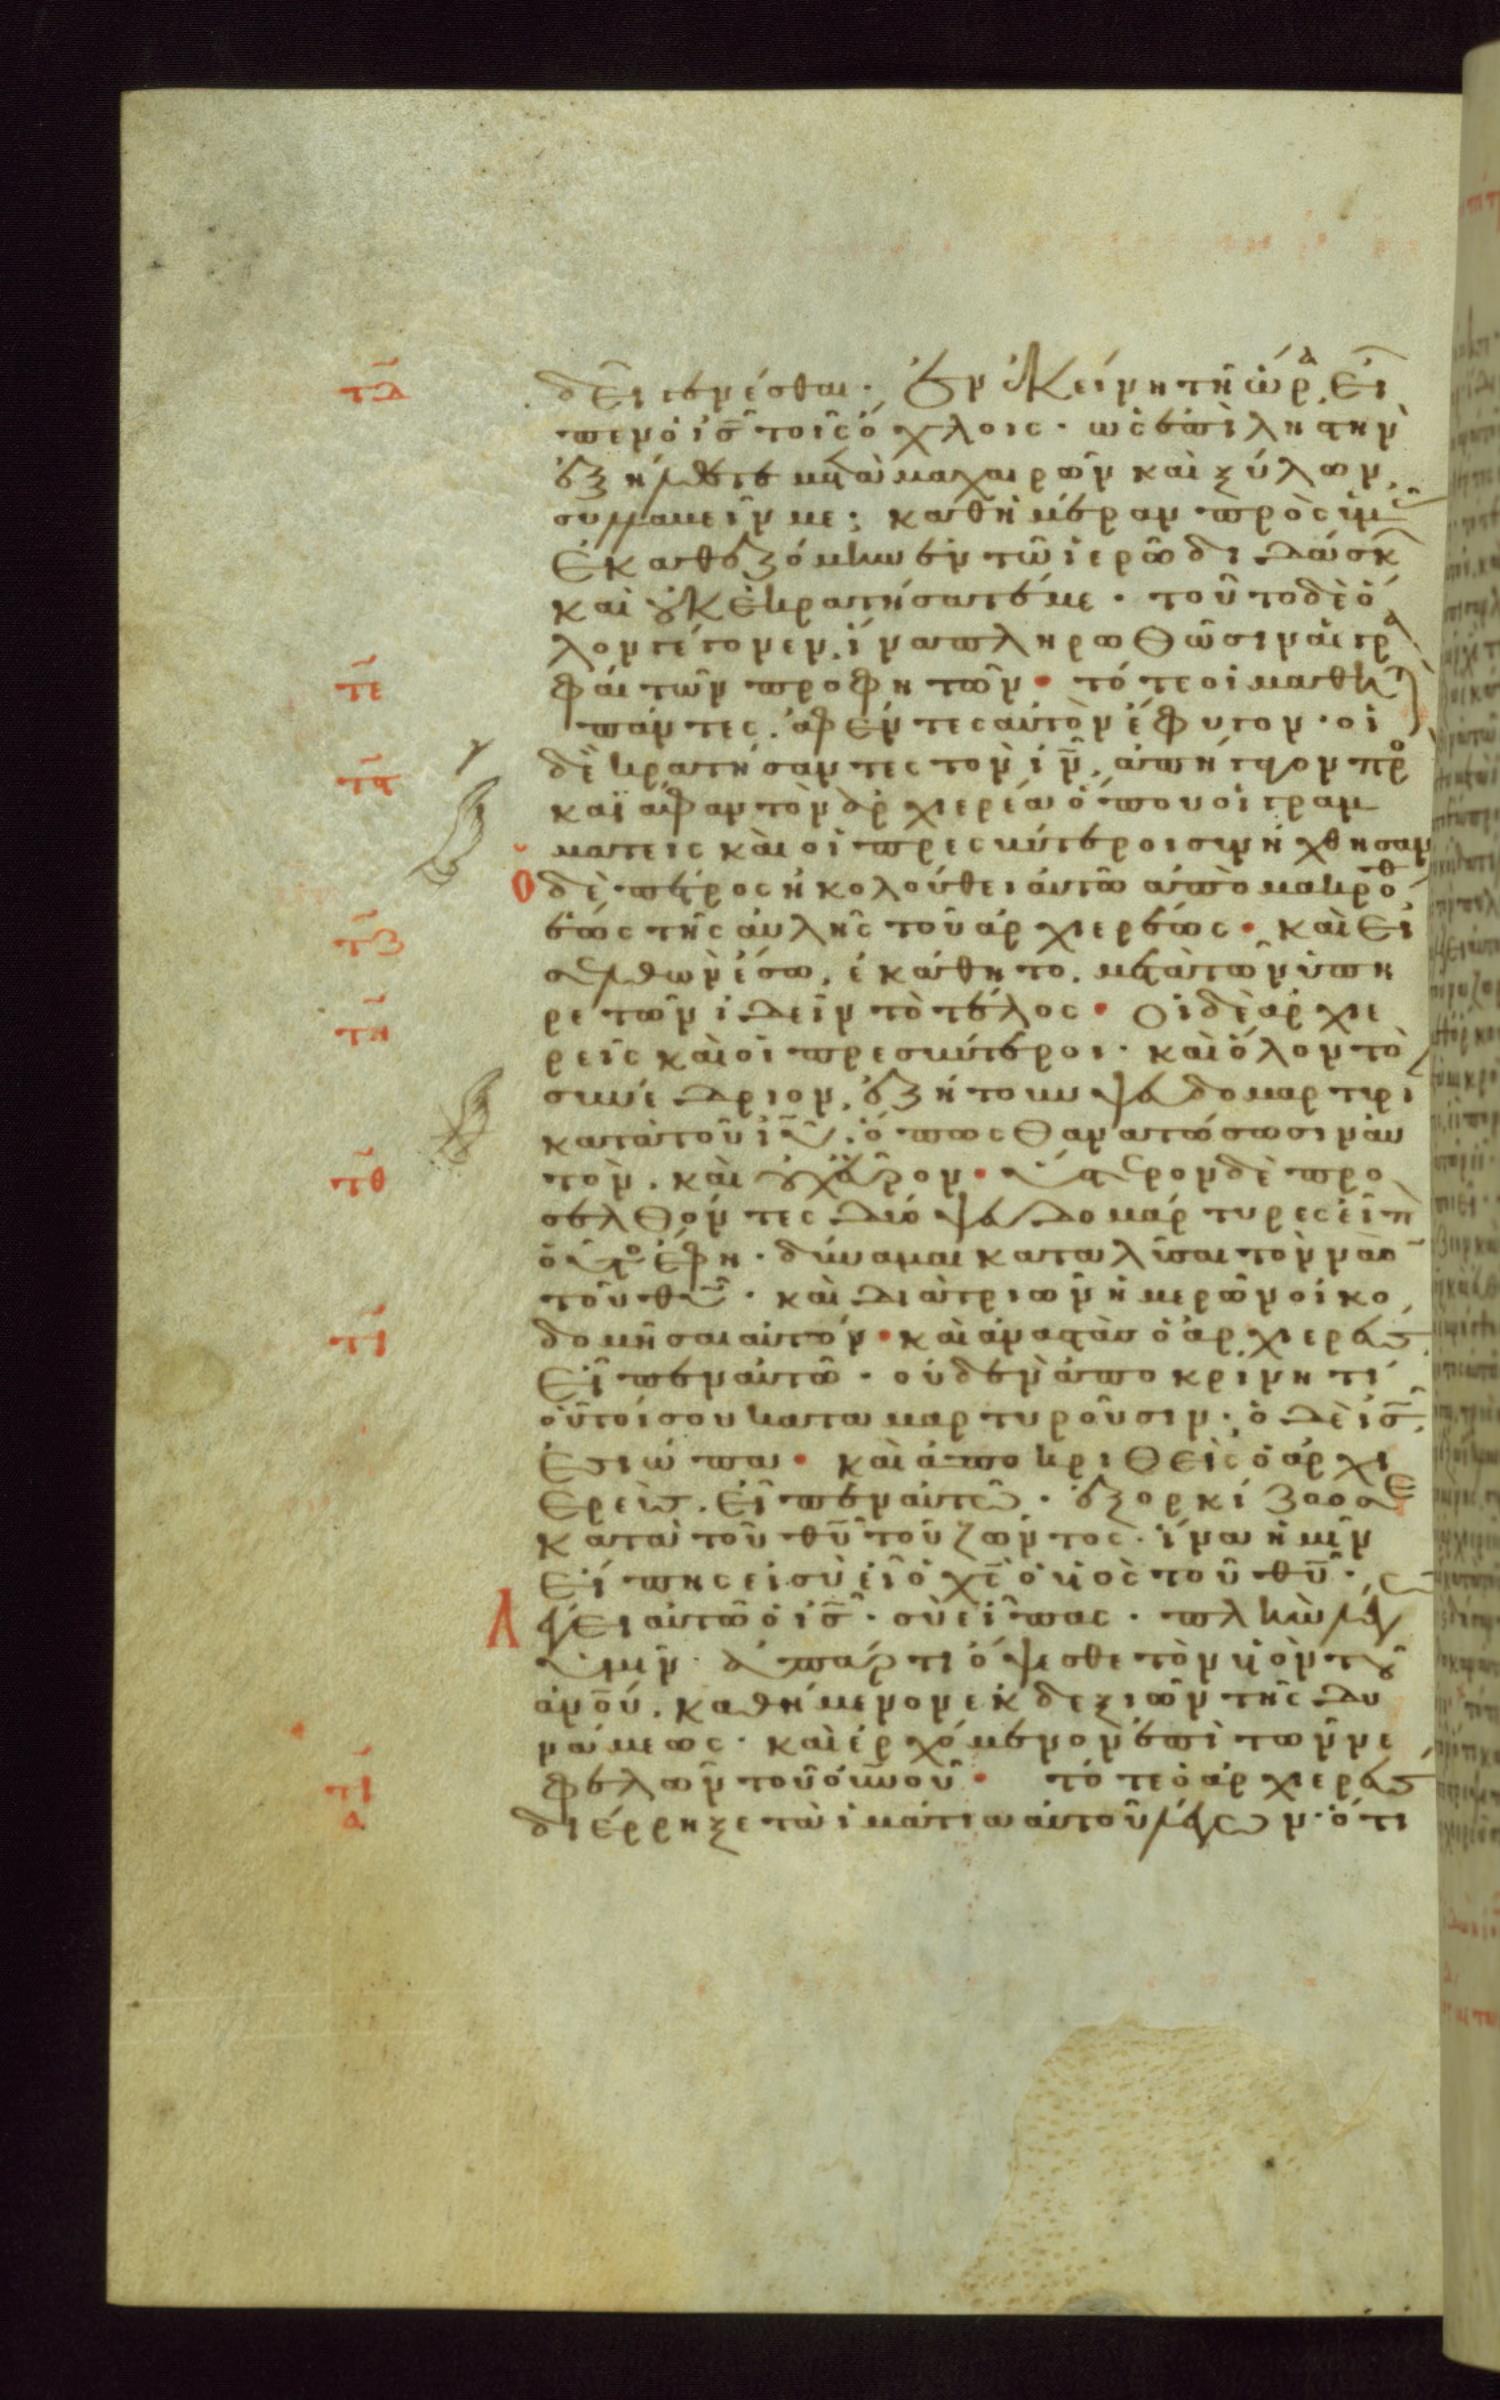 τδ δεῖ γενέσθαι· Ἐν ἐκείνη τῆ ὥρα, Εἶ
πεν ὁ ις τοῖς ὄχλοις· ὡς ἐπὶ ληστὴν
ἐξήλθετε μετὰ μαχαιρῶν καὶ ξύλων,
συλλαβεῖν με; καθημέραν πρὸς ὑμᾶς
ἐκαθεζόμην ἐν τῶ ἱερῶ διδάσκων
καὶ οὐκ ἐκρατήσατέ με· τοῦτο δὲ ὅ
λον γέγονεν, ἵνα πληρωθῶσιν αἱ γρα
τε φαὶ τῶν προφητῶν· τότε οἱ μαθηταὶ
πάντες, ἀφέντες αὐτὸν ἔφυγον· οἱ
τϛ δὲ κρατήσαντες τὸν ιν, ἀπήγαγον προ
καϊάφαν τὸν ἀρχιερέα ὅπου οἱ γραμ
ματεις καὶ οἱ πρεσβύτεροι συνήχθησαν
Ὁ δὲ πέτρος ἠκολούθει αὐτῶ ἀπὸ μακρόθεν
τζ ἕως τῆς αὐλῆς τοῦ ἀρχιερέως· καὶ Εἰ
σελθὼν ἔσω, ἐκάθητο, μετὰ τῶν ὑπη
τη ρετῶν ἰδεῖν τὸ τέλος· Οἱ δὲ ἀρχιε
ρεῖς καὶ οἱ πρεσβύτεροι· καὶ ὅλον τὸ
συνέδριον, ἐζήτουν ψευδομαρτυρί
κατὰ τοῦ ιυ, ὅπως θανατώσωσιν αὐ
τθ τὸν, καὶ οὐχ εὗρον· ὕστερον δὲ προ
σελθόντες δύο ψευδομάρτυρες εἶπ
οὗτος ἔφη· δύναμαι καταλῦσαι τὸν ναὸ
τοῦ θυ· καὶ διὰ τριῶν ἡμερῶν οἰκο
τι δομῆσαι αὐτόν· καὶ ἀναστὰς ὁ ἀρχιερεὺς
Εἶπεν αὐτῶ· οὐδὲν ἀποκρίνη τί
οὗτοί σου καταμαρτυροῦσιν· ὁ δὲ ις
ἐσιώπα· καὶ ἀποκριθεὶς ὁ ἀρχι
ερεὺς, εἶπεν αὐτῶ· ἐξορκίζω σε
κατὰ τοῦ θυ τοῦ ζῶντος· ἵνα ἡμῖν
εἴπης εἰ σὺ εἶ ὁ χς ὁ υἱὸς τοῦ θυ·
Λέγει αὐτῶ ὁ ις· σὺ εἶπας· πλὴν λέγω
ὑμῖν· ἀπάρτι ὄψεσθε τὸν υἱὸν τοῦ
ανου, καθήμενον ἐκ δεξιῶν τῆς δυ
νάμεως· καὶ ἐρχόμενον ἐπὶ τῶν νε
τια φελῶν τοῦ οὐνου· τότε ὁ ἀρχιερεὺς
διέρρηξε τὰ ἱμάτια αὐτοῦ λέγων· ὅτι